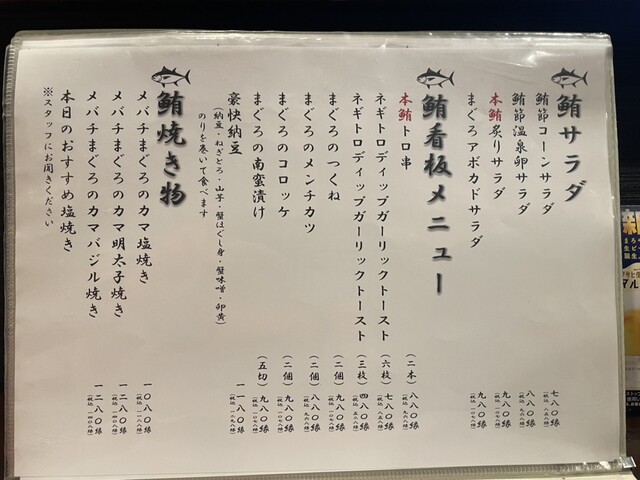 鮪サラダ
鮪節コーンサラダ 七八〇縁
鮪節温泉卵サラダ 八八〇縁
本鮪炙りサラダ 九八〇縁
まぐろアボカドサラダ 九八〇縁
鮪看板メニュー
本鮪トロ串 (二本) 八八〇縁
ネギトロディップガーリックトースト (六枚) 七八〇縁
ネギトロディップガーリックトースト (三枚) 四八〇縁
まぐろのつくね (二個) 九八〇縁
まぐろのメンチカツ (二個) 八八〇縁
まぐろのコロッケ (二個) 九八〇縁
まぐろの南蛮漬け (五切) 九八〇縁
豪快納豆 一一八〇縁
(納豆・ねぎとろ・山芋・蟹ほぐし身・蟹味噌・卵黄)
のりを巻いて食べます
鮪焼き物
メバチまぐろのカマ塩焼き 一〇八〇縁
メバチまぐろのカマ明太子焼き 一二八〇縁
メバチまぐろのカマバジル焼き 一二八〇縁
本日のおすすめ塩焼き
※スタッフにお聞きください